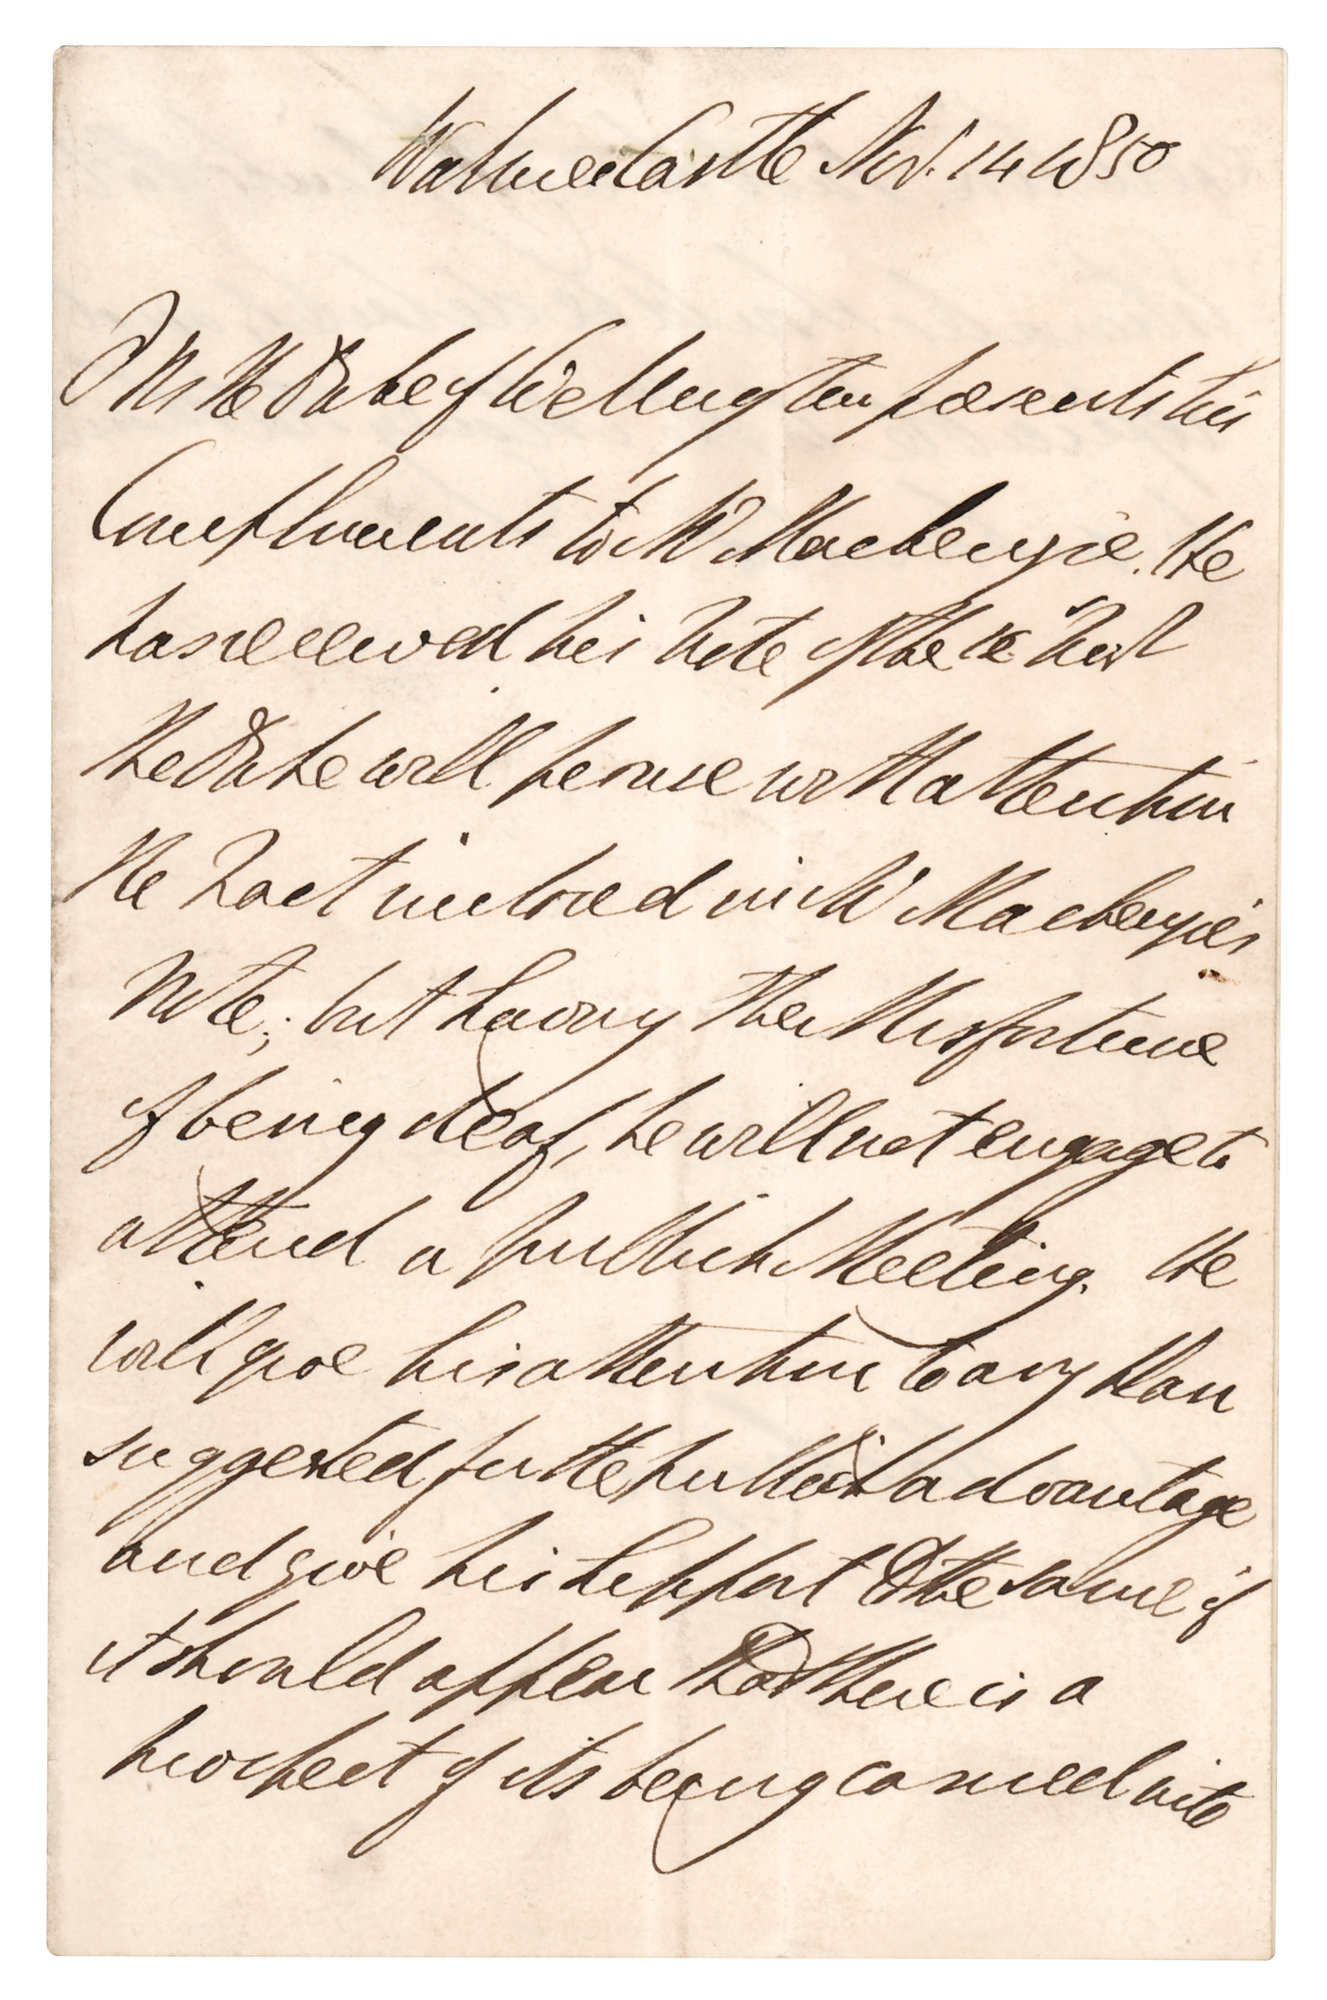 Walmer Castle Nov. 14 1850
F M the Duke of Wellington presents his
Compliments to Mr Mackenzie. He
has received his Note of the Inst
The Duke will peruse with attention
the Tract inclosed in Mr Mackenzie's
Note; but having the Misfortune
of being deaf, he will not engage to
attend a publick Meeting. He
will give his attention to any Plan
suggested for the publick advantage
and give his support to the same if
it should appear that there is a
prospect of its being carried into